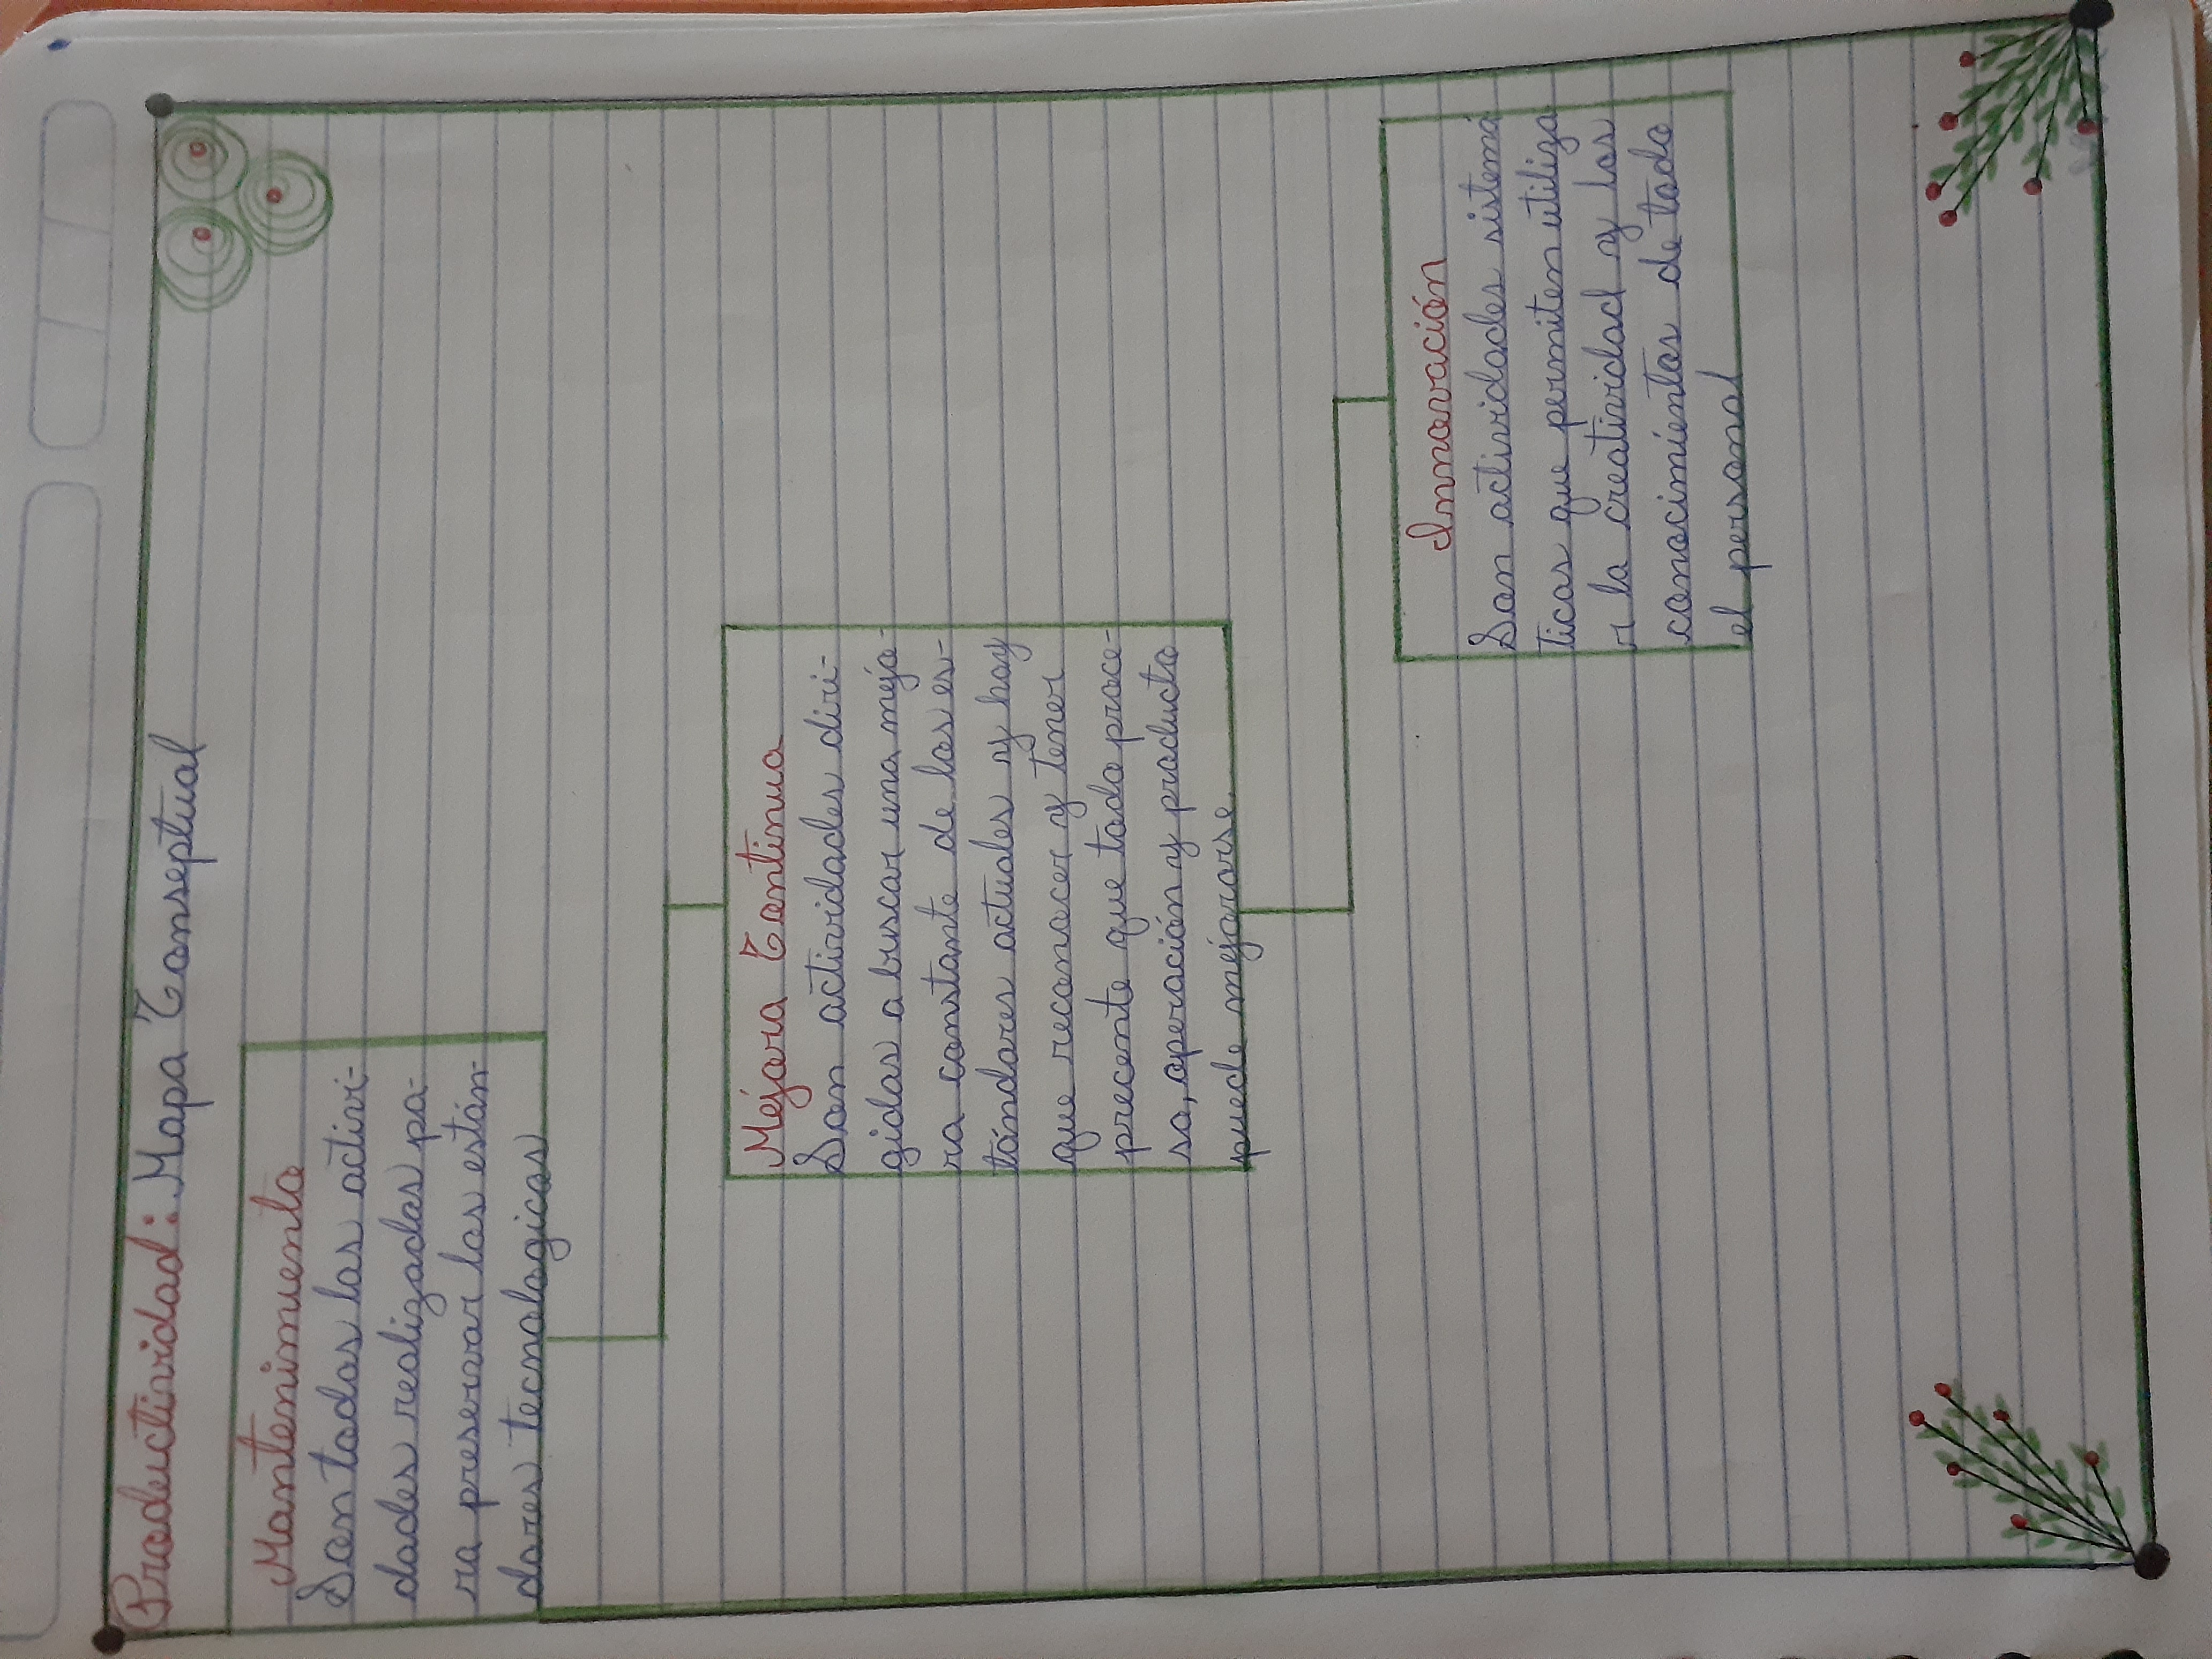 Productividad: Mapa Conseptual
Mantenimiento
Son todas las activi-
dades realizadas pa-
ra preservar los están-
dares tecnologicas
Mejora Continua
Son actividades diri-
gidas a buscar una mejo-
ra constante de los es-
tándares actuales y hay
que reconocer y tener
precente que todo proce-
so, operación y producto
puede mejorarse.
Innovación
Son actividades sistemá
ticas que permiten utiliza
r la creatividad y los
conocimientos de todo
el personal